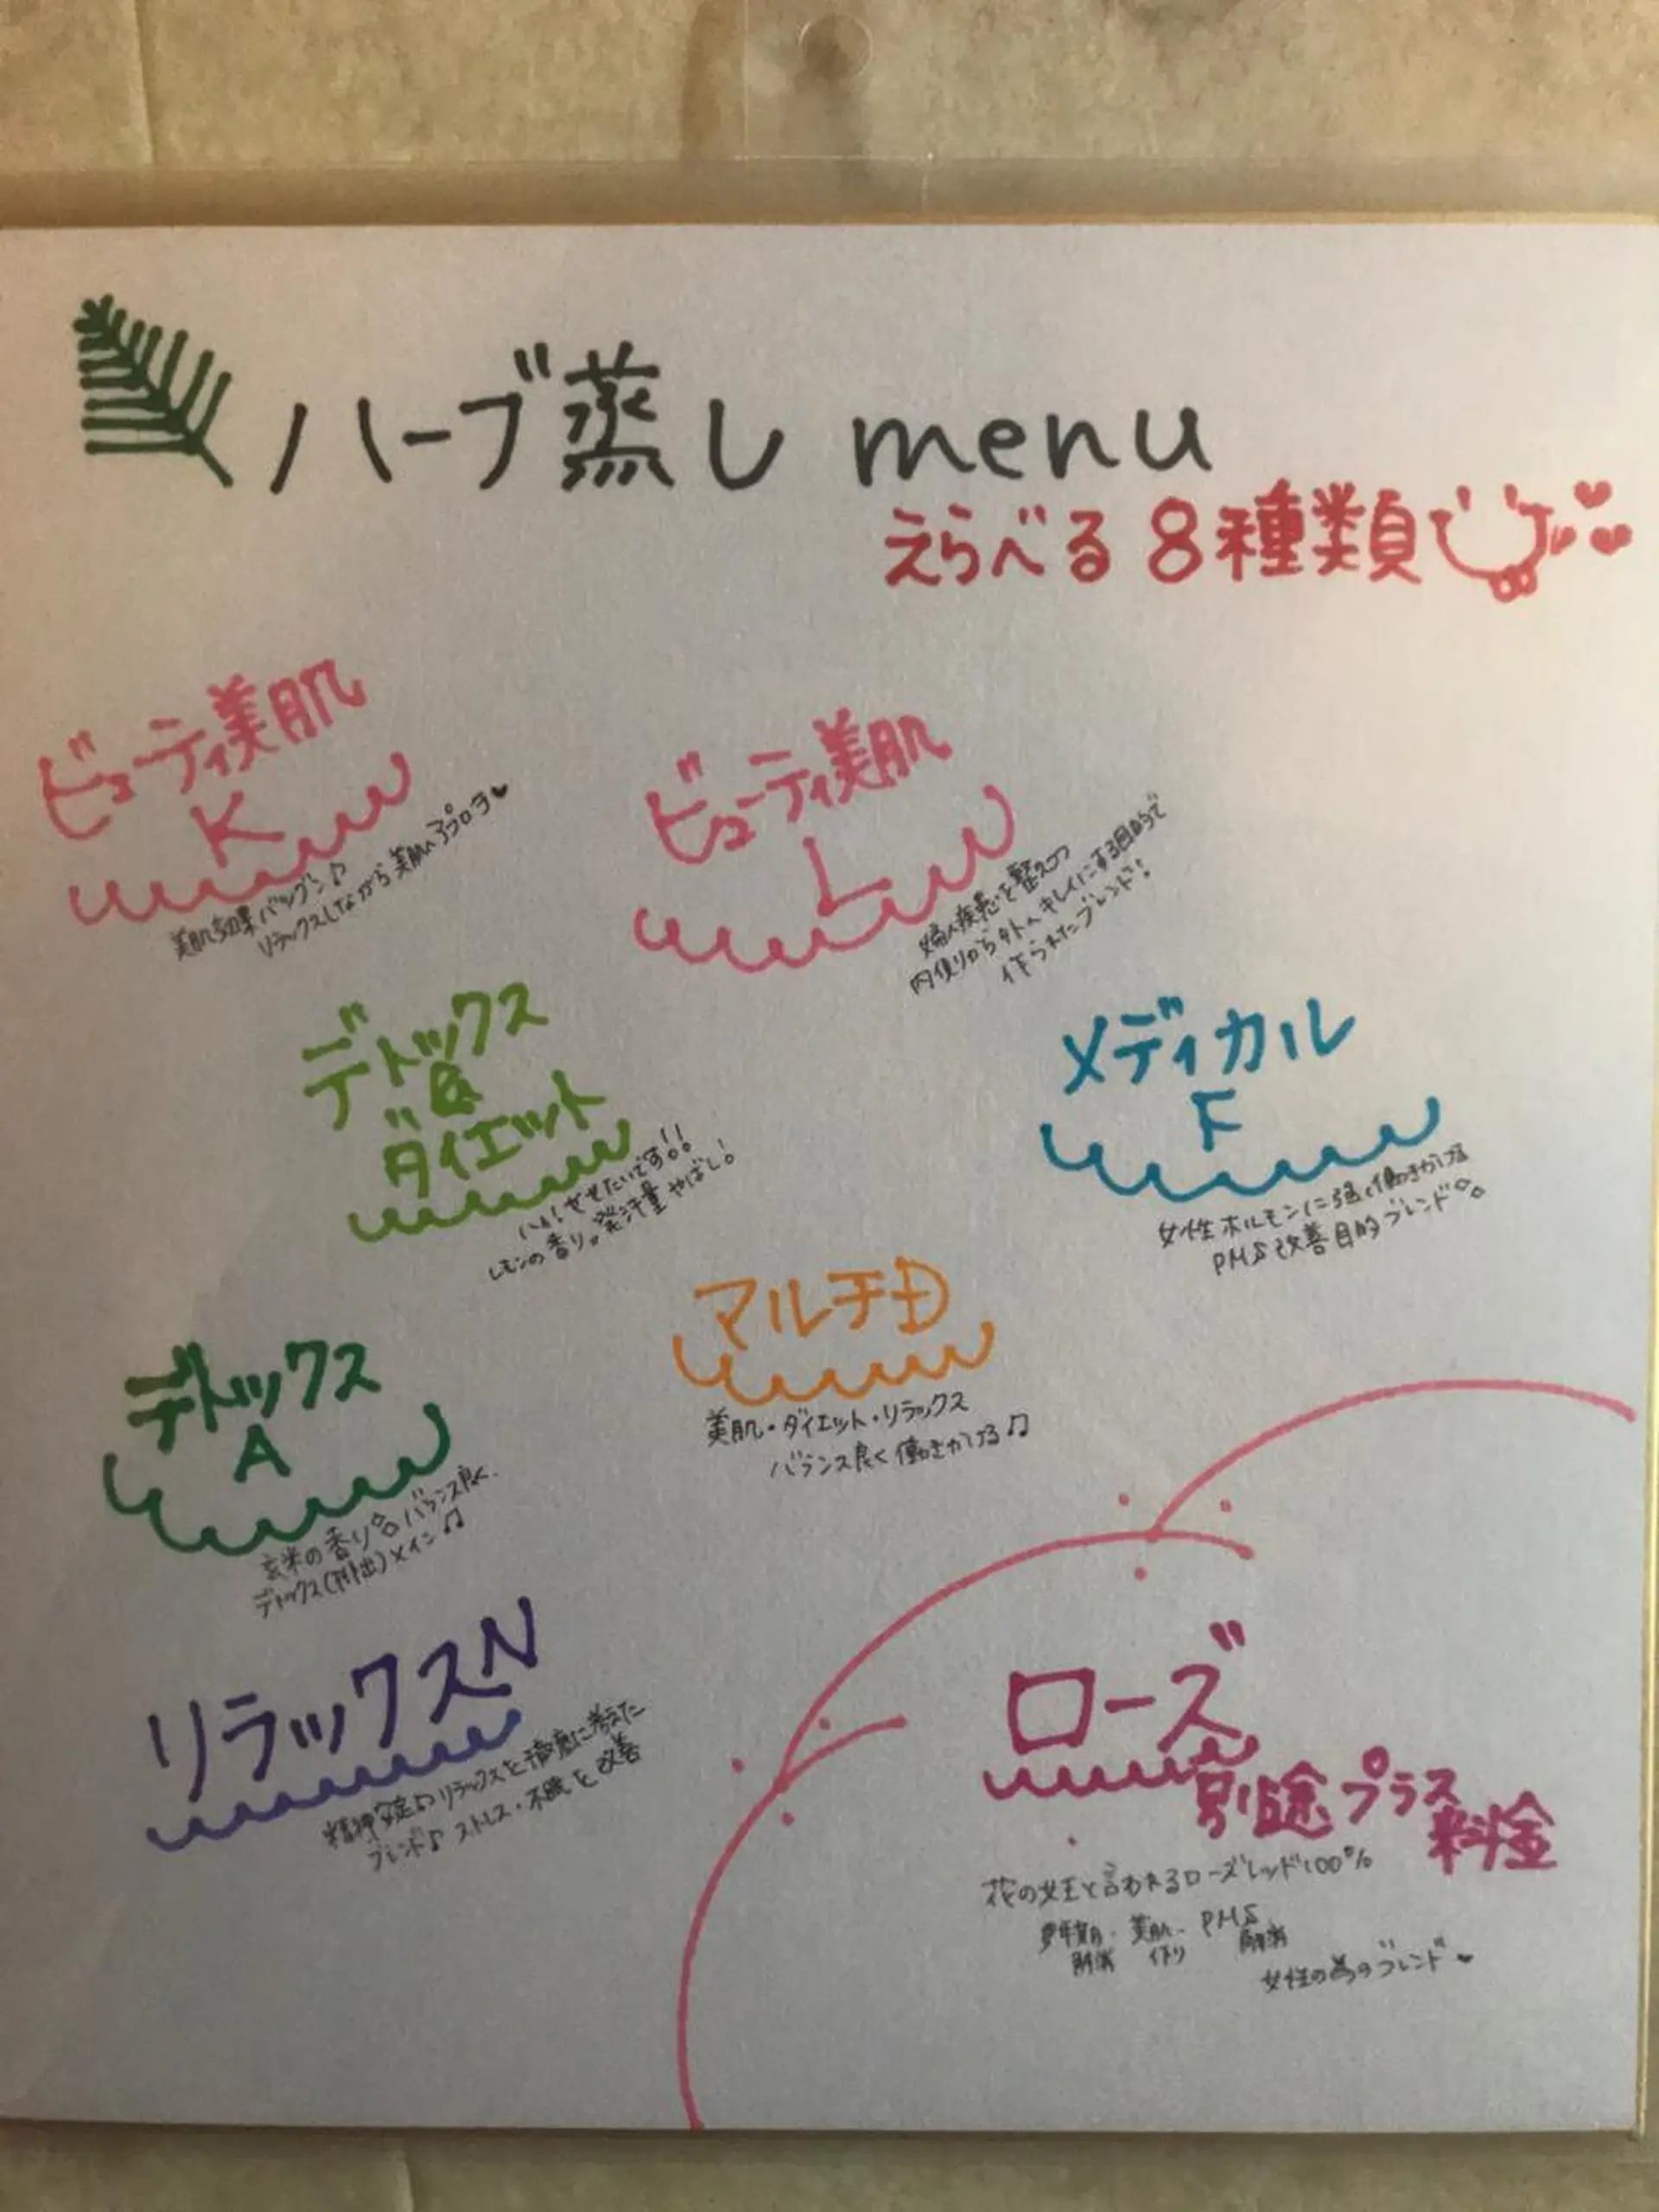 ハーブ蒸し menu
えらべる 8種類
ビューティ美肌
K
美肌効果バツグン♪
リラックスしながら美肌へアプローチ♥
ビューティ美肌
L
婦人疾患を整えつつ
内側から外へキレイにする目的で
作られたブレンド!
デトックス
&
ダイエット
ハイ!やせたいです!!
レモンの香り。発汗量やばし!
メディカル
F
女性ホルモンに強く働きかける
PMS改善目的ブレンド
マルチD
美肌・ダイエット・リラックス
バランス良く働きかける♫
デトックス
A
玄米の香り バランス良く
デトックス(排出)メイン♫
リラックスN
精神安定♪リラックスを
に考えた
ブレンド♪ ストレス・不眠を改善
ローズ
別途プラス
料金
花の女王と言われるローズレッド100%
更年期・美肌・PMS
解消 作り 解消
女性の為のブレンド♥